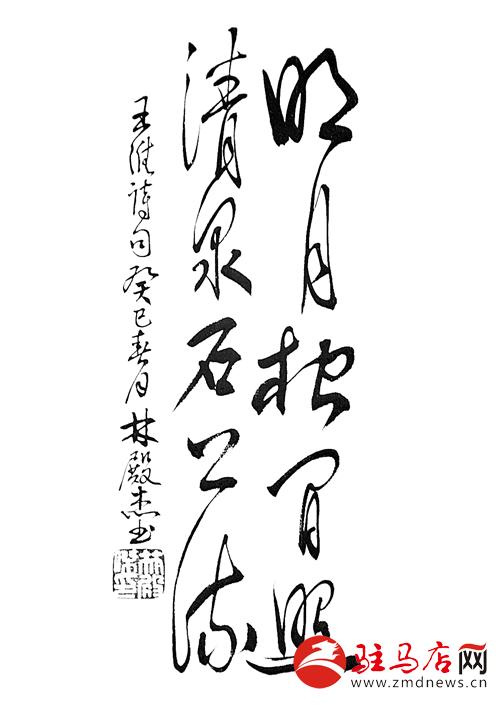 明月松间照
清泉石上流
王维诗句癸巳春月林殿杰书
驻马店网
www.zmdnews.cn